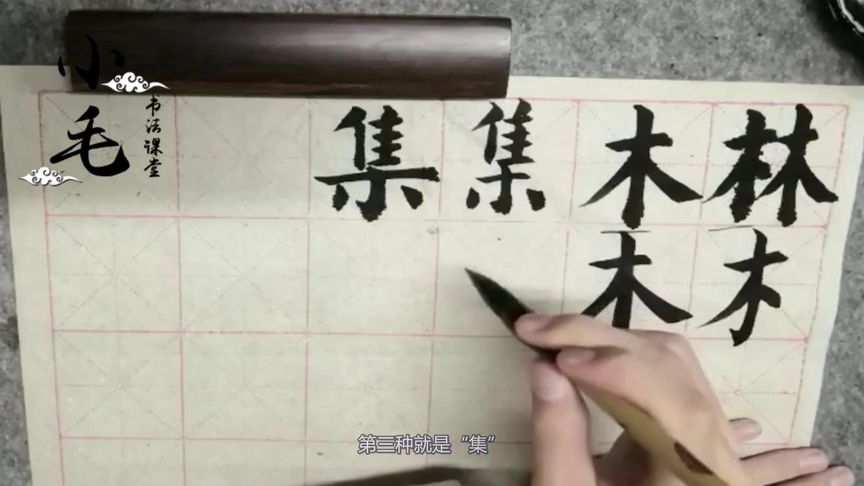 小毛
书法课堂
集 集 木 林
木 木
第三种就是“集”